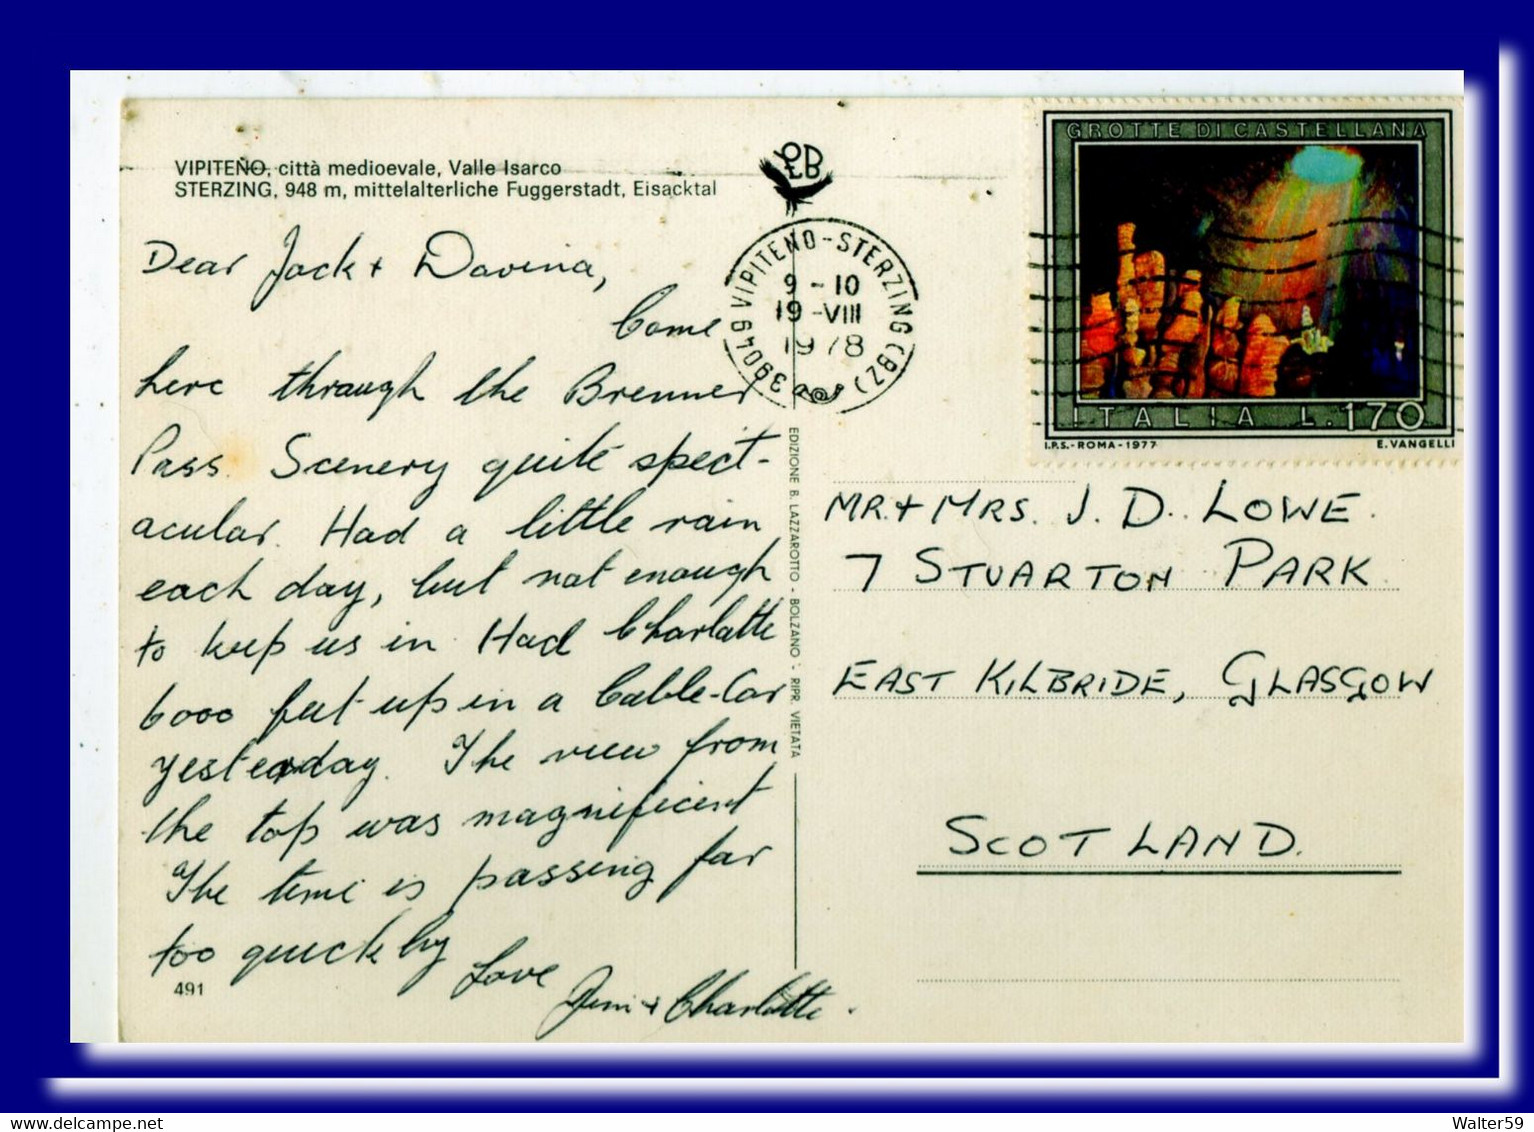 VIPITENO, città medioevale, Valle Isarco
STERZING, 948 m, mittelalterliche Fuggerstadt, Eisacktal
LDB
Dear Jack + Davina,
Come
here through the Brenner
Pass. Scenery quite spect-
acular. Had a little rain
each day, but not enough
to keep us in. Had Charlotte
6000 feet up in a Cable-Car
yesterday. The view from
the top was magnificent
The time is passing far
too quickly
Love
Jim + Charlotte.
491
39049 VIPITENO-STERZING (BZ)
9-10
19-VIII
1978
EDIZIONE B. LAZZAROTTO - BOLZANO - RIPR. VIETATA
GROTTE DI CASTELLANA
ITALIA L.170
I.P.S.-ROMA-1977 E. VANGELLI
MR. + MRS. J. D. LOWE.
7 STUARTON PARK
EAST KILBRIDE, GLASGOW
SCOTLAND.
Walter59